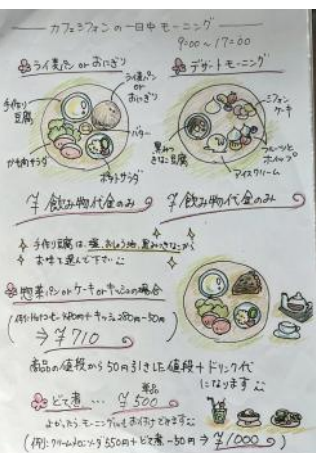 カフェシフォンの一日中モーニング
9:00〜17:00
ライ麦パン or おにぎり
デザートモーニング
ライ麦パン
or
おにぎり
手作り
豆腐
バター
ポテトサラダ
シフォン
ケーキ
フルーツと
ホイップ
アイスクリーム
黒みつ
きなこ豆腐
¥飲み物代金のみ
¥飲み物代金のみ
手作り豆腐は、塩、おしょう油、黒みつきなこから
お味を選んで下さい
惣菜パン or ケーキ or キッシュの場合
(例:コーヒー480円+キッシュ280円-50円)
⇒ ¥710
商品の値段から50円引きした値段+ドリンク代
になります
どて煮… 単品 ¥500
よかったらモーニングにもお付けできます
(例:クリームメロンソーダ550円+どて煮-50円⇒¥1000)